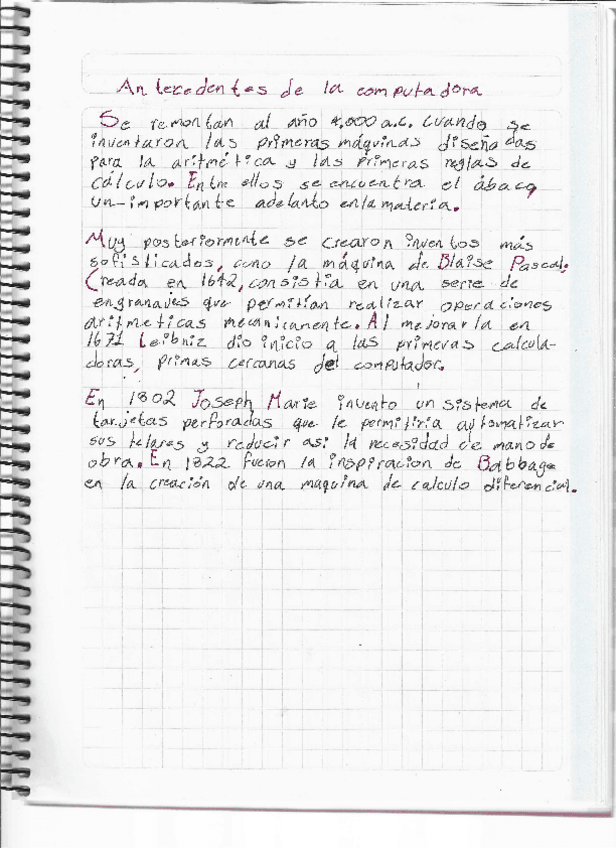 Antecedentes de la computadora
Se remontan al año 4,000 a.c. Cuando se
inventaron las primeras máquinas diseñadas
para la aritmética y las primeras reglas de
cálculo. Entre ellos se encuentra el ábaco,
un-importante adelanto en la materia.
Muy posteriormente se crearon inventos más
sofisticados, como la máquina de Blaise Pascal.
Creada en 1642, consistía en una serie de
engranajes que permitían realizar operaciones
aritmeticas mecanicamente. Al mejorarla en
1671 Leibniz dio inicio a las primeras calcula-
doras, primas cercanas del computador.
En 1802 Joseph Marie invento un sistema de
tarjetas perforadas que le permitiria automatizar
sus telares y reducir asi la necesidad de mano de
obra. En 1822 fueron la inspiracion de Babbage
en la creación de una maquina de calculo diferencial.